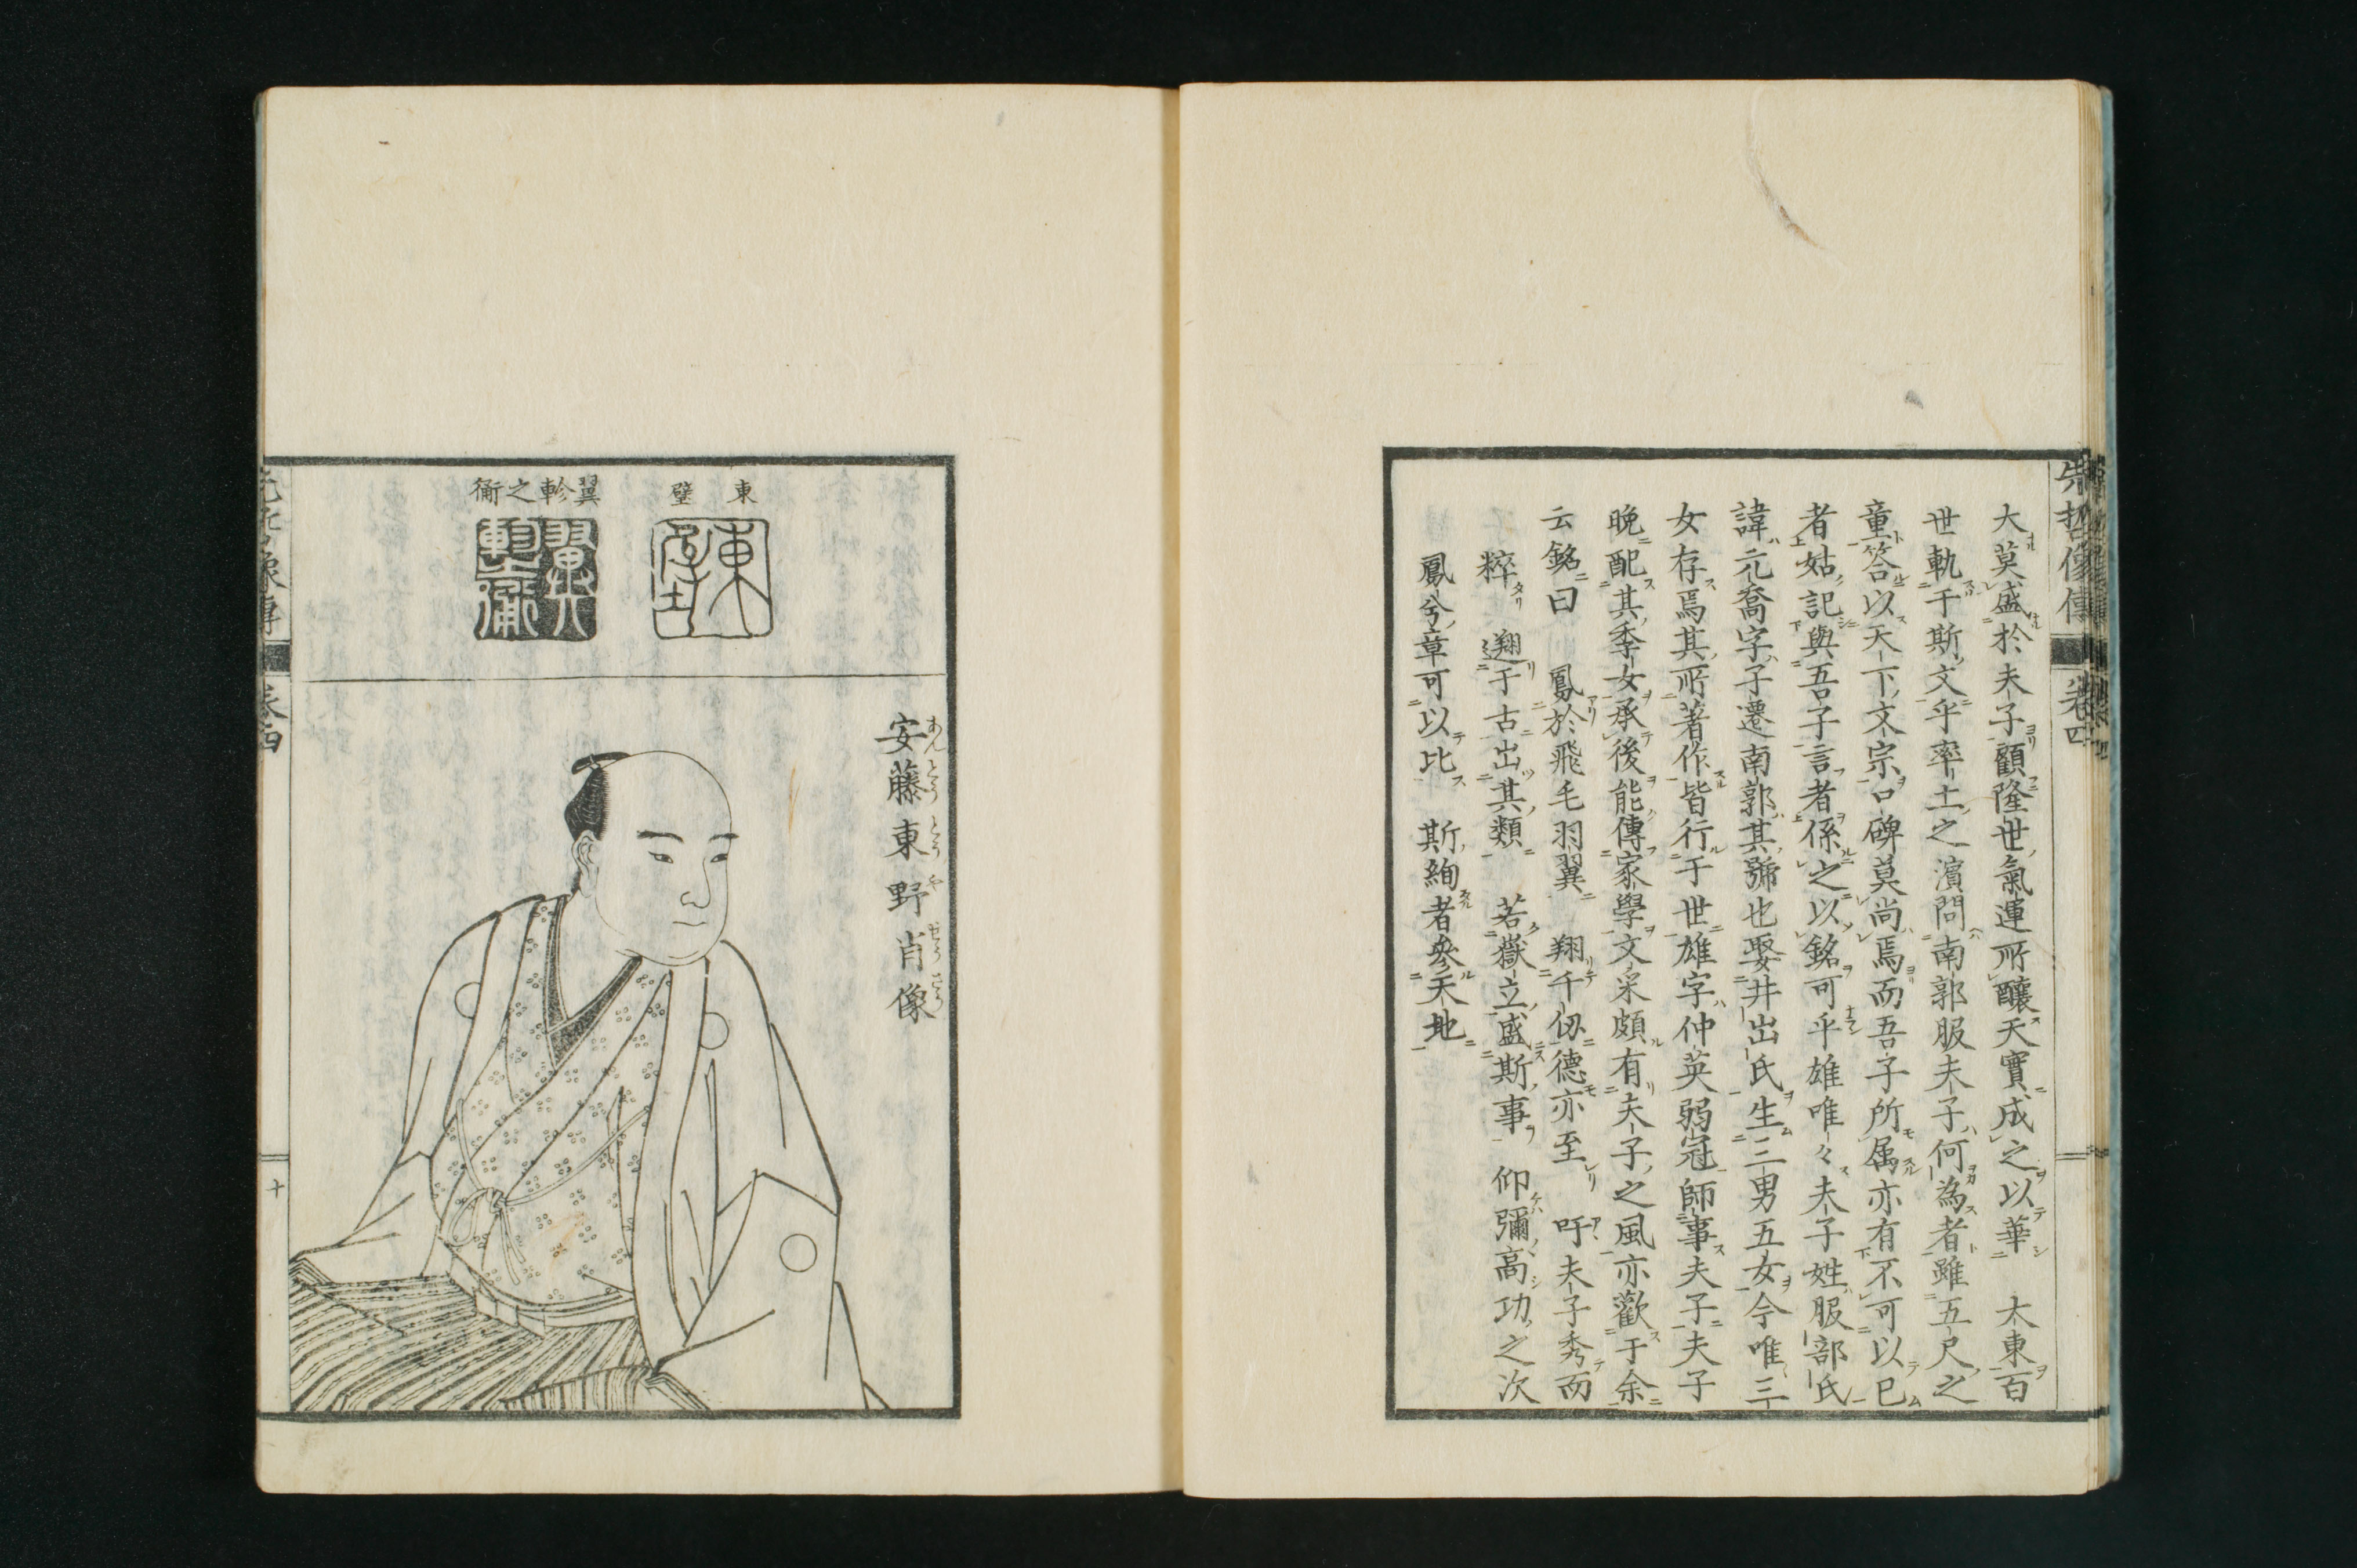 先哲像傳 卷四
大莫盛於夫子顧隆世氣運所釀天實成之以華 大東百
世軌于斯文乎率土之濱問南郭服夫子何為者雖五尺之
童答以天下文宗口碑莫尚焉而吾子所属亦有不可以已
者姑記與吾子言者係之以銘可乎雄唯々夫子姓服部氏
諱元喬字子遷南郭其號也娶井出氏生二男五女今唯三
女存焉其所著作皆行于世雄字仲英弱冠師事夫子夫子
晩配其季女承後能傳家學文采頗有夫子之風亦歡于余
云銘曰 鳳於飛毛羽翼 翔千仭德亦至 吁夫子秀而
粹 翔于古出其類 若嶽立盛斯事 仰彌高功之次
鳳兮章可以比 斯絢者參天地
東壁
翼軫之衛
東壁
翼軫之衛
安藤東野肖像
あんとうとうやせうさう
先哲像傳 卷四
十